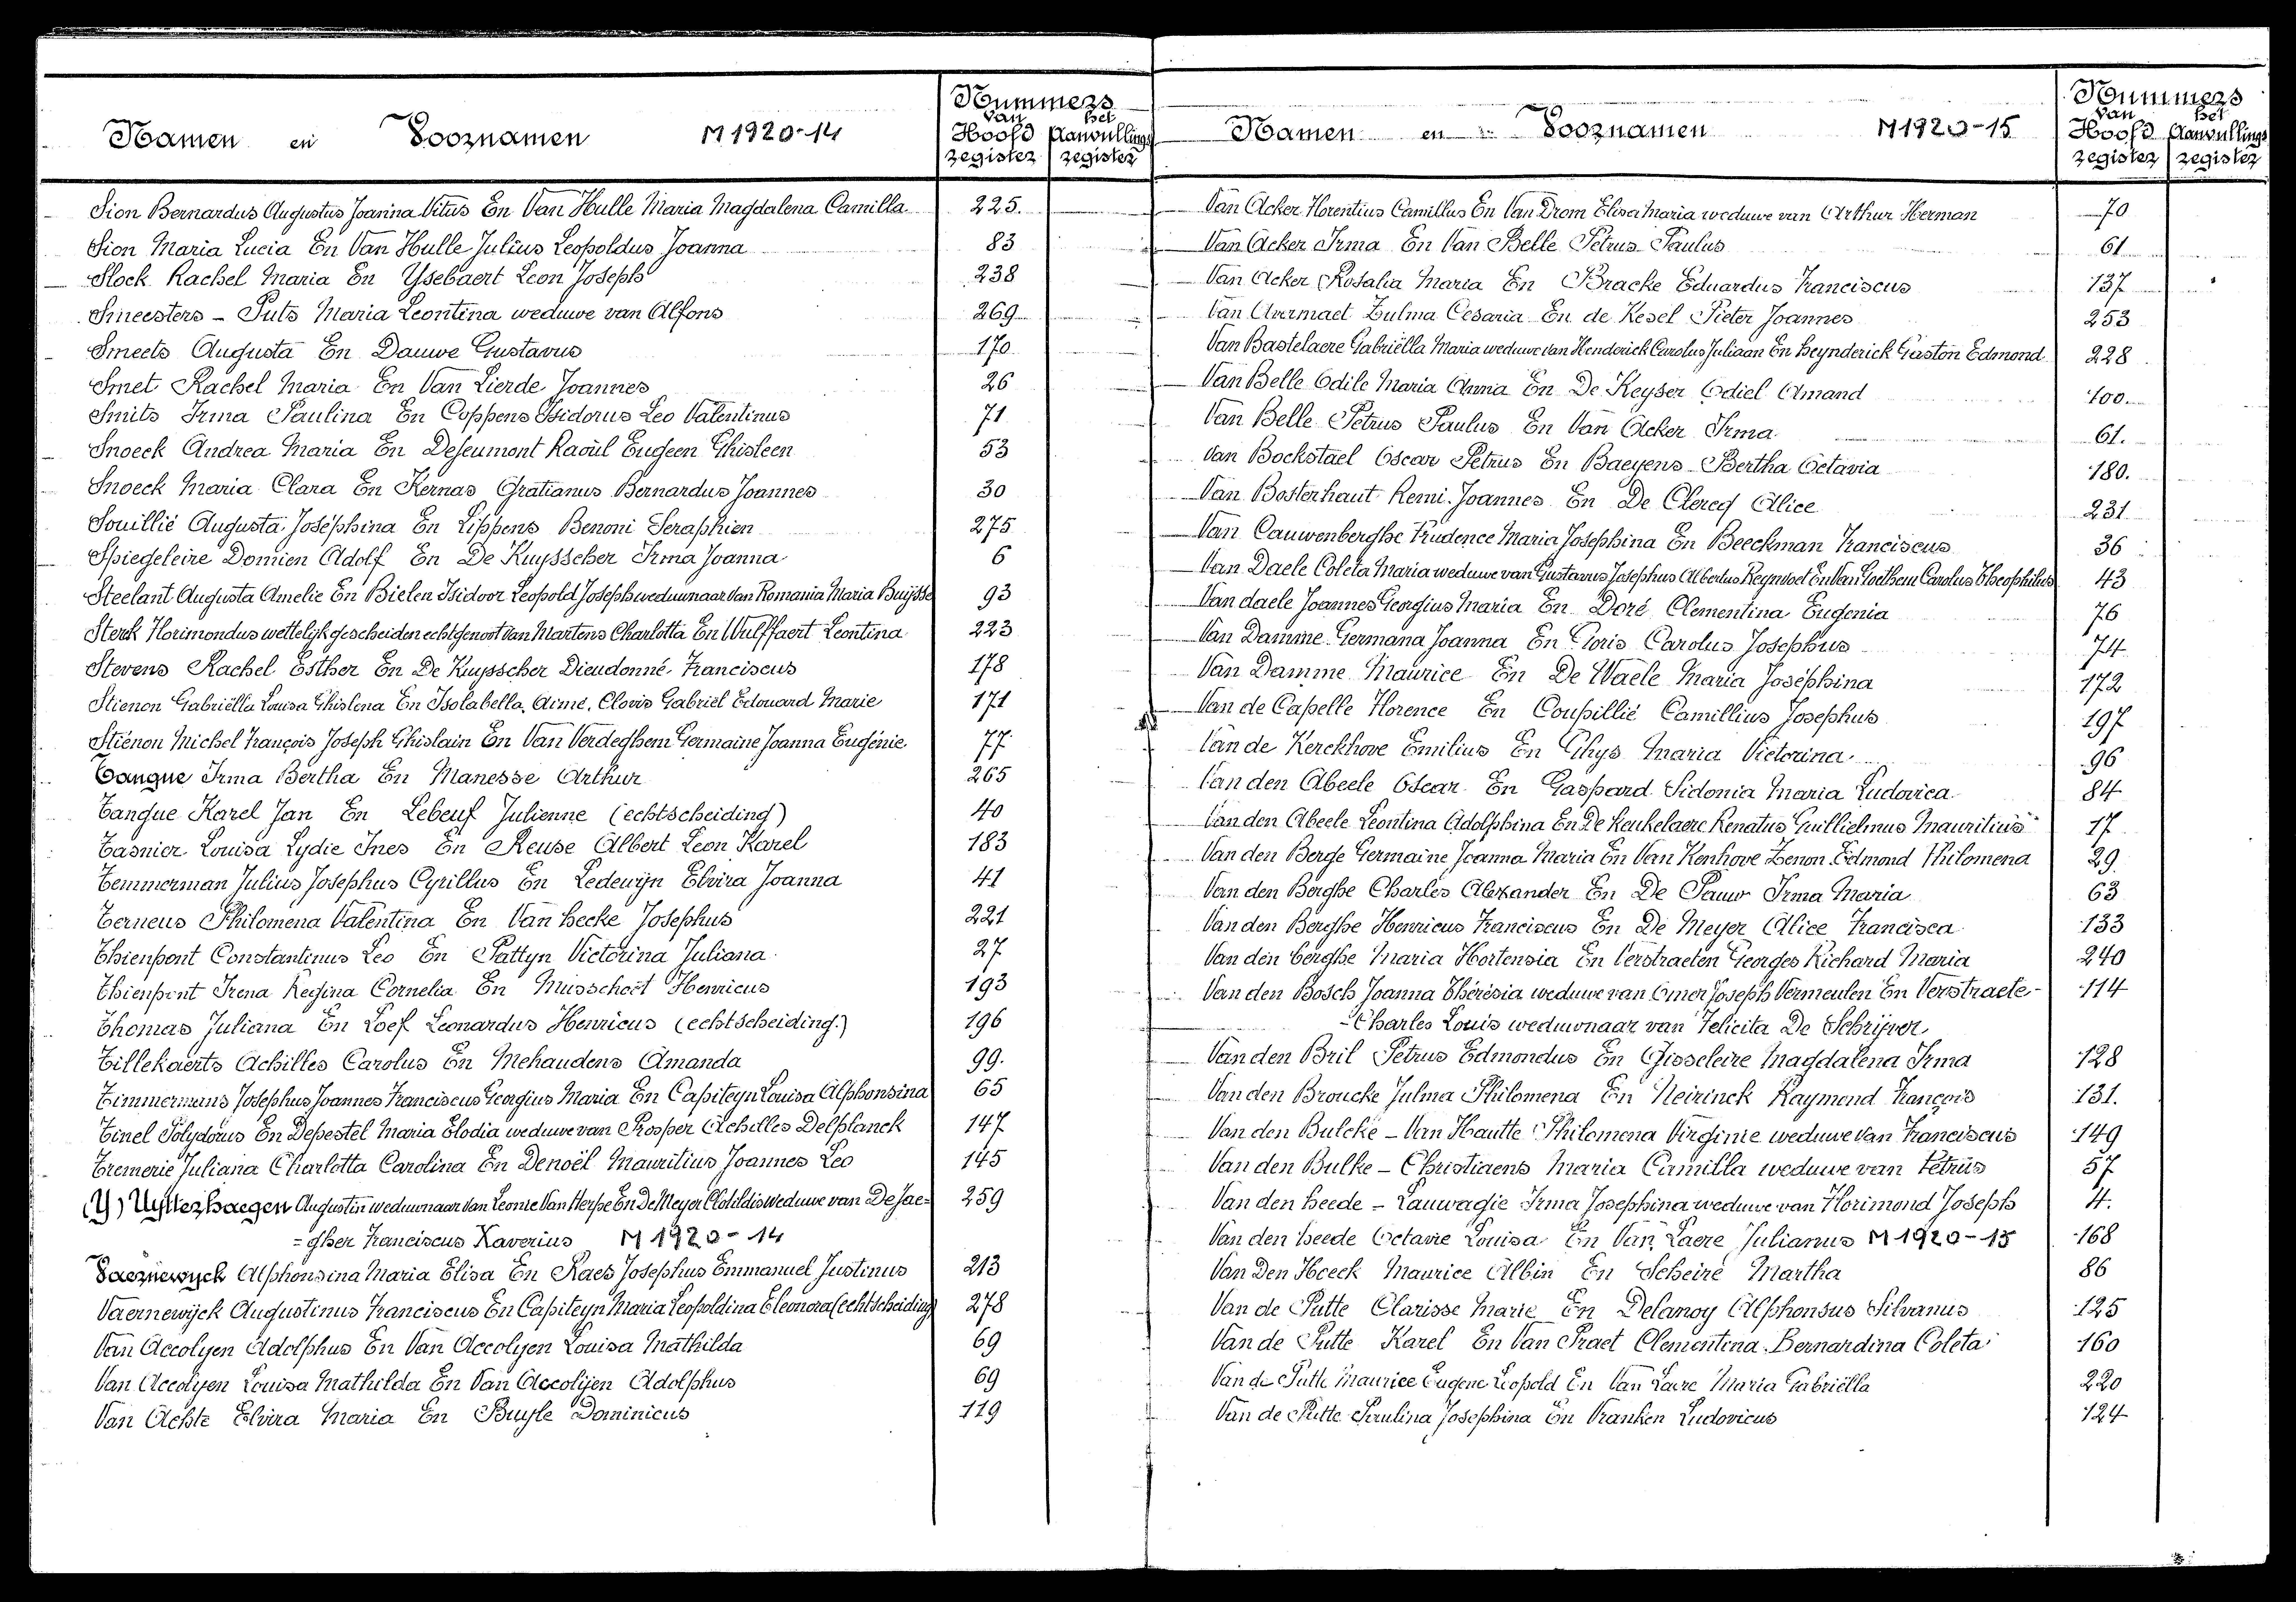 Namen en Voornamen M 1920-14
Nummers
van het
Hoofd Aanvullings
register register
Sion Bernardus Augustus Joanna Vitus En Van Hulle Maria Magdalena Camilla 225.
Sion Maria Lucia En Van Hulle Julius Leopoldus Joanna 83
Slock Rachel Maria En Ysebaert Leon Joseph 238
Smeesters - Puts Maria Leontina weduwe van Alfons 269
Smeets Augusta En Dauwe Gustavus 170
Smet Rachel Maria En Van Lierde Joannes 26
Smits Irma Paulina En Coppens Isidorus Leo Valentinus 71
Snoeck Andrea Maria En Deseumont Raoul Eugeen Ghisleen 53
Snoeck Maria Clara En Kernas Gratianus Bernardus Joannes 30
Souillié Augusta Joséphina En Lippens Benoni Seraphien 275
Spiegeleire Domien Adolf En De Kuysscher Irma Joanna 6
Steelant Augusta Amelie En Bielen Isidoor Leopold Joseph weduwnaar van Romania Maria Buijsse 93
Sterck Florimondus wettelijk gescheiden echtgenoot van Martens Charlotta En Wulffaert Leontina 223
Stevens Rachel Esther En De Kuysscher Dieudonné Franciscus 178
Stienon Gabriëlla Louisa Ghislena En Isolabella. Aimé. Clovis Gabriel Edouard Marie 171
Stiénon Michel François Joseph Ghislain En Van Verdeghem Germaine Joanna Eugénie 77
Tangue Irma Bertha En Manesse Arthur 265
Tangue Karel Jan En Lebeuf Julienne (echtscheiding) 40
Tasnier Louisa Lydie Ines En Reuse Albert Leon Karel 183
Temmerman Julius Josephus Cyrillus En Ledewijn Elvira Joanna 41
Terneus Philomena Valentina En Van hecke Josephus 221
Thienpont Constantinus Leo En Pattyn Victorina Juliana 27
Thienpont Irena Regina Cornelia En Musschoot Henricus 193
Thomas Juliana En Loef Leonardus Henricus (echtscheiding.) 196
Tillekaerts Achilles Carolus En Mehaudens Amanda 99.
Timmermans Josephus Joannes Franciscus Georgius Maria En Capiteyn Louisa Alphonsina 65
Tinel Polydorus En Depestel Maria Elodia weduwe van Prosper Achilles Delplanck 147
Tremerie Juliana Charlotta Carolina En Denoël Mauritius Joannes Leo 145
(Y) Uytterhaegen Augustin weduwnaar van Leonie Van Herpe En De Meyer Clothildis weduwe van De Jae= 259
=gher Franciscus Xaverius M 1920-14
Vaernewyck Alphonsina Maria Elisa En Raes Josephus Emmanuel Justinus 213
Vaernewijck Augustinus Franciscus En Capiteyn Maria Leopoldina Eleonora (echtscheiding) 278
Van Accolyen Adolphus En Van Accolyen Louisa Mathilda 69
Van Accolyen Louisa Mathilda En Van Accolijen Adolphus 69
Van Achte Elvira Maria En Buyle Dominicus 119
Namen en Voornamen M1920-15
Nummers
van het
Hoofd Aanvullings
register register
Van Acker Florentius Camillus En Van Drom Elisa Maria weduwe van Arthur Herman 70
Van Acker Irma En Van Belle Petrus Paulus 61
Van Acker Rosalia Maria En Bracke Eduardus Franciscus 137
Van Avermaet Zulma Cesaria En de Kesel Pieter Joannes 253
Van Bastelaere Gabriëlla Maria weduwe van Henderick Carolus Juliaan En heynderick Gaston Edmond 228
Van Belle Odile Maria Anna En De Keyser Odiel Amand 100.
Van Belle Petrus Paulus En Van Acker Irma 61.
Van Bockstael Oscar Petrus En Baeyens Bertha Octavia 180.
Van Bosterhaut Remi Joannes En De Clercq Alice 231
Van Cauwenberghe Prudence Maria Josephina En Beeckman Franciscus 36
Van Daele Coleta Maria weduwe van Gustavus Josephus Albertus En Van Carolus Theophilus 43
Van daele Joannes Georgius Maria En Doré Clementina Eugenia 76
Van Damme Germana Joanna En Goris Carolus Josephus 74
Van Damme Maurice En De Waele Maria Joséphina 172
Van de Capelle Florence En Coupillié Camillius Josephus 197
Van de Kerckhove Emilius En Ghys Maria Victorina 96
Van den Abeele Oscar En Gaspard Sidonia Maria Ludovica 84
Van den Abeele Leontina Adolphina En De Keukelaere Renatus Guillielmus Mauritius 17
Van den Berge Germaine Joanna Maria En Van Kenhove Zenon Edmond Philomena 29
Van den Berghe Charles Alexander En De Pauw Irma Maria 63
Van den Berghe Henricus Franciscus En De Meyer Alice Francisca 133
Van den berghe Maria Hortensia En Verstraeten Georges Richard Maria 240
Van den Bosch Joanna Thérésia weduwe van Omer Joseph Vermeulen En Verstraete- 114
-Charles Louis weduwnaar van Felicita De Schrijver
Van den Bril Petrus Edmondus En Gisseleire Magdalena Irma 128
Van den Broucke Julma Philomena En Neirinck Raymond François 131.
Van den Bulcke - Van Hautte Philomena Virginie weduwe van Franciscus 149
Van den Bulke - Christiaens Maria Camilla weduwe van Petrus 57
Van den heede - Lauwagie Irma Josephina weduwe van Florimond Joseph 4.
Van den heede Octavie Louisa En Van Laere Julianus M 1920-15 168
Van Den Hoeck Maurice Albin En Scheire Martha 86
Van de Putte Clarisse Marie En Delanoy Alphonsus Silvanus 125
Van de Putte Karel En Van Praet Clementina Bernardina Coleta 160
Van de Putte Maurice Eugene Leopold En Van Laere Maria Gabriëlla 220
Van de Putte Paulina Josephina En Vranken Ludovicus 124